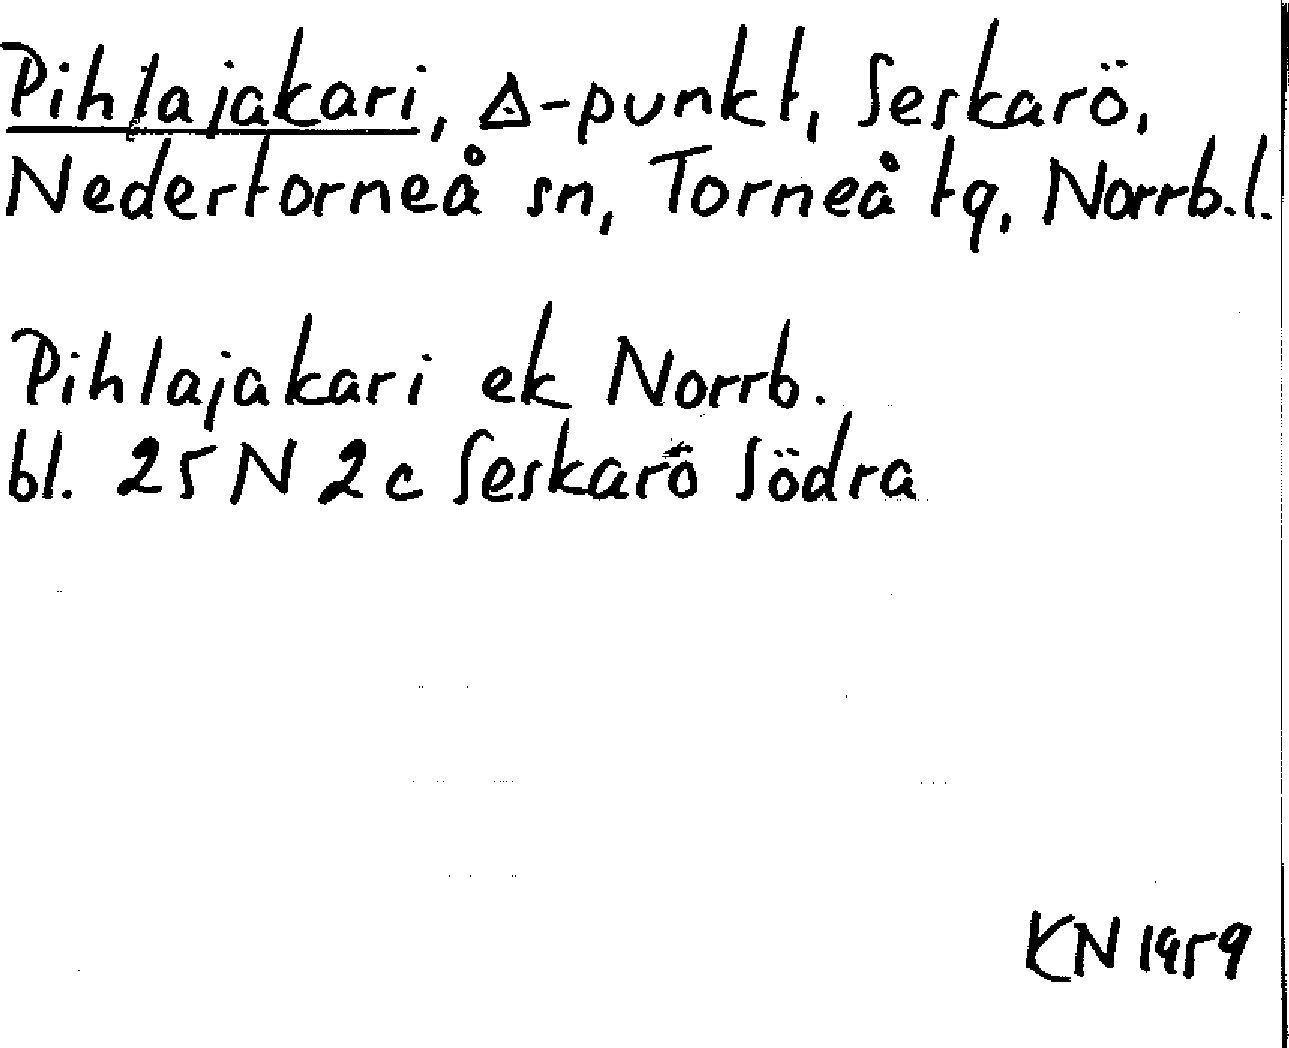 Pihlajakari, △-punkt, Seskarö,
Nedertorneå sn, Torneå tg, Norrb.l.
Pihlajakari ek Norrb.
bl. 25 N 2c Seskarö Södra
KN 1959